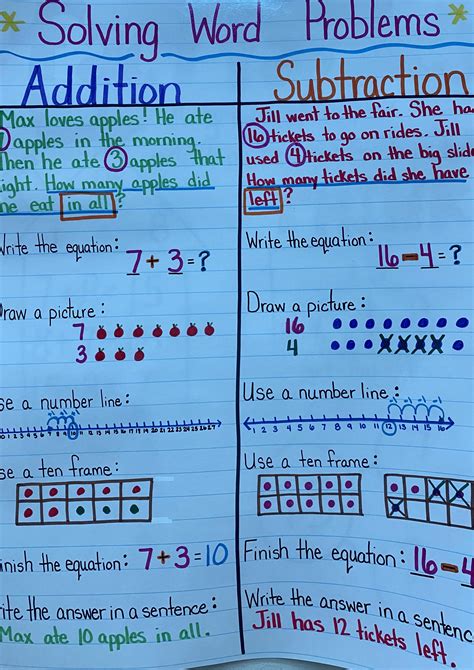 Solving Word Problems
Addition
Max loves apples! He ate
apples in the morning.
Then he ate 3 apples that
night. How many apples did
he eat in all?
Write the equation:
7 + 3 = ?
Draw a picture:
7
3
Use a number line:
0 1 2 3 4 5 6 7 8 9 10 11 12 13 14 15 16 17 18 19 20 21 22 23 24 25 26 27
Use a ten frame:
Finish the equation: 7+3=10
Write the answer in a sentence:
Max ate 10 apples in all.
Subtraction
Jill went to the fair. She had
16 tickets to go on rides. Jill
used 4 tickets on the big slide.
How many tickets did she have
left?
Write the equation:
16-4=?
Draw a picture:
16
4
Use a number line:
1 2 3 4 5 6 7 8 9 10 11 12 13 14 15 16
Use a ten frame:
Finish the equation: 16-4
Write the answer in a sentence
Jill has 12 tickets left.